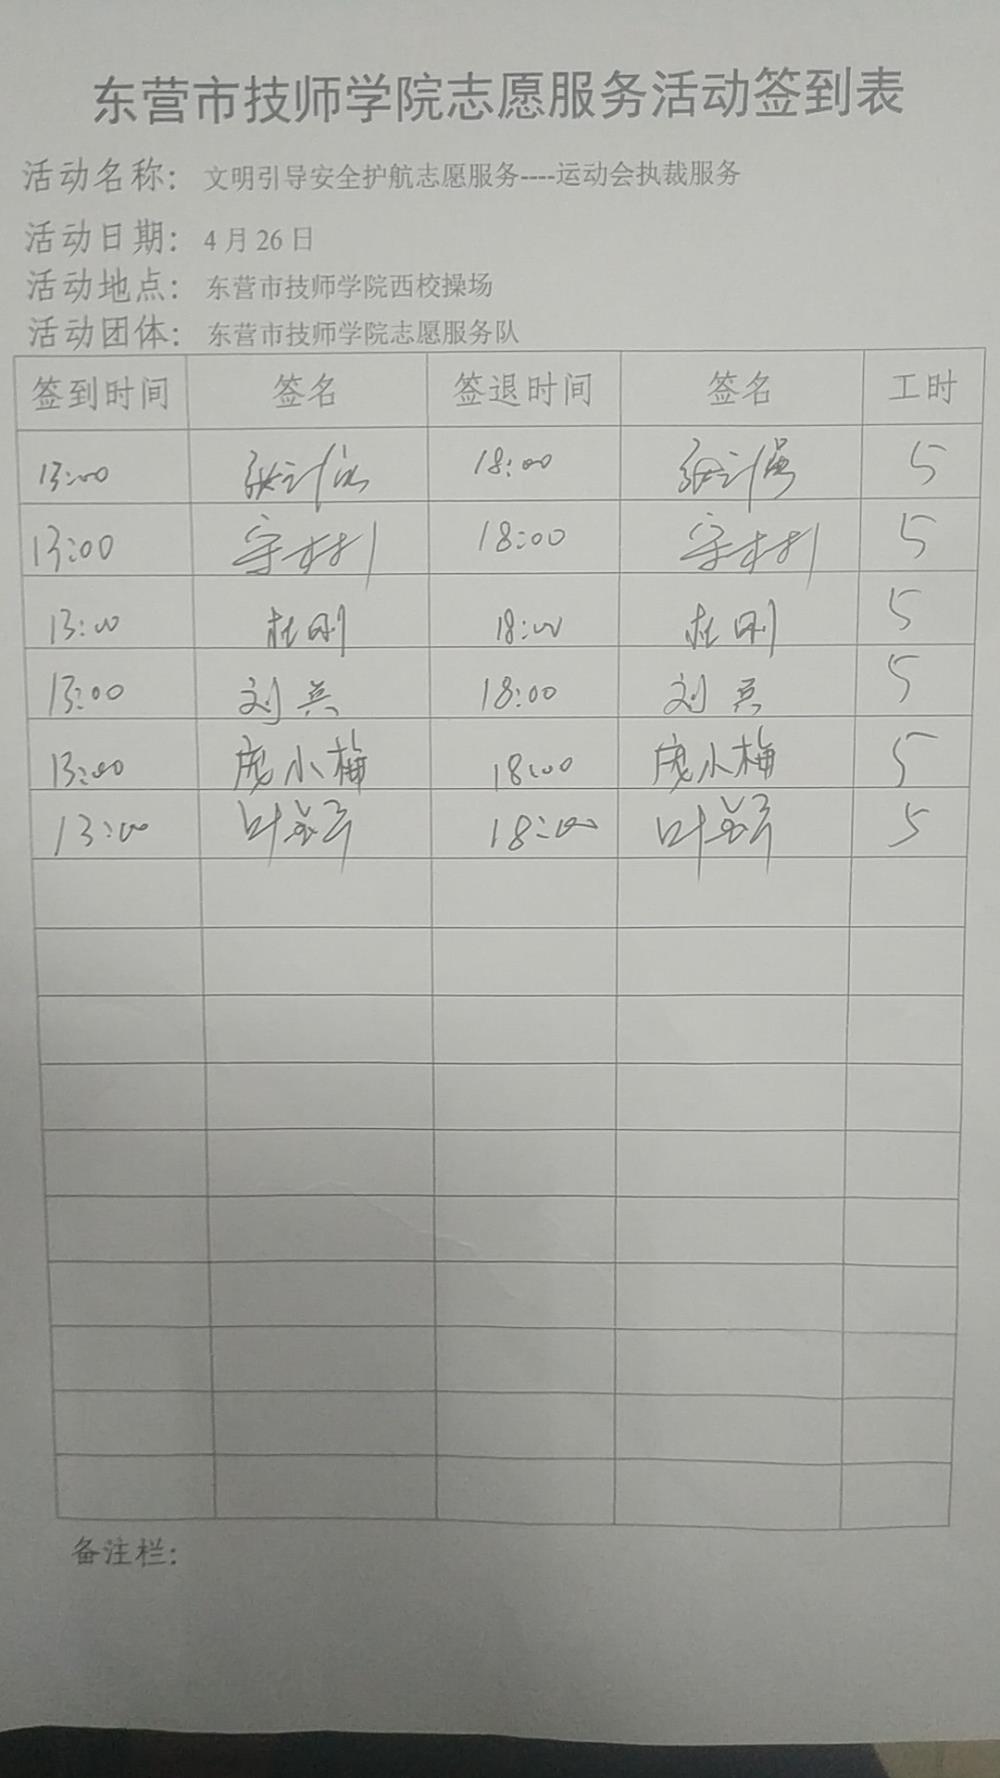 东营市技师学院志愿服务活动签到表
活动名称： 文明引导安全护航志愿服务----运动会执裁服务
活动日期： 4月26日
活动地点： 东营市技师学院西校操场
活动团体： 东营市技师学院志愿服务队
签到时间 签名 签退时间 签名 工时
13:00 18:00 5
13:00 18:00 5
13:00 杜刚 18:00 杜刚 5
13:00 刘兵 18:00 刘兵 5
13:00 庞小梅 18:00 庞小梅 5
13:00 18:00 5
备注栏：